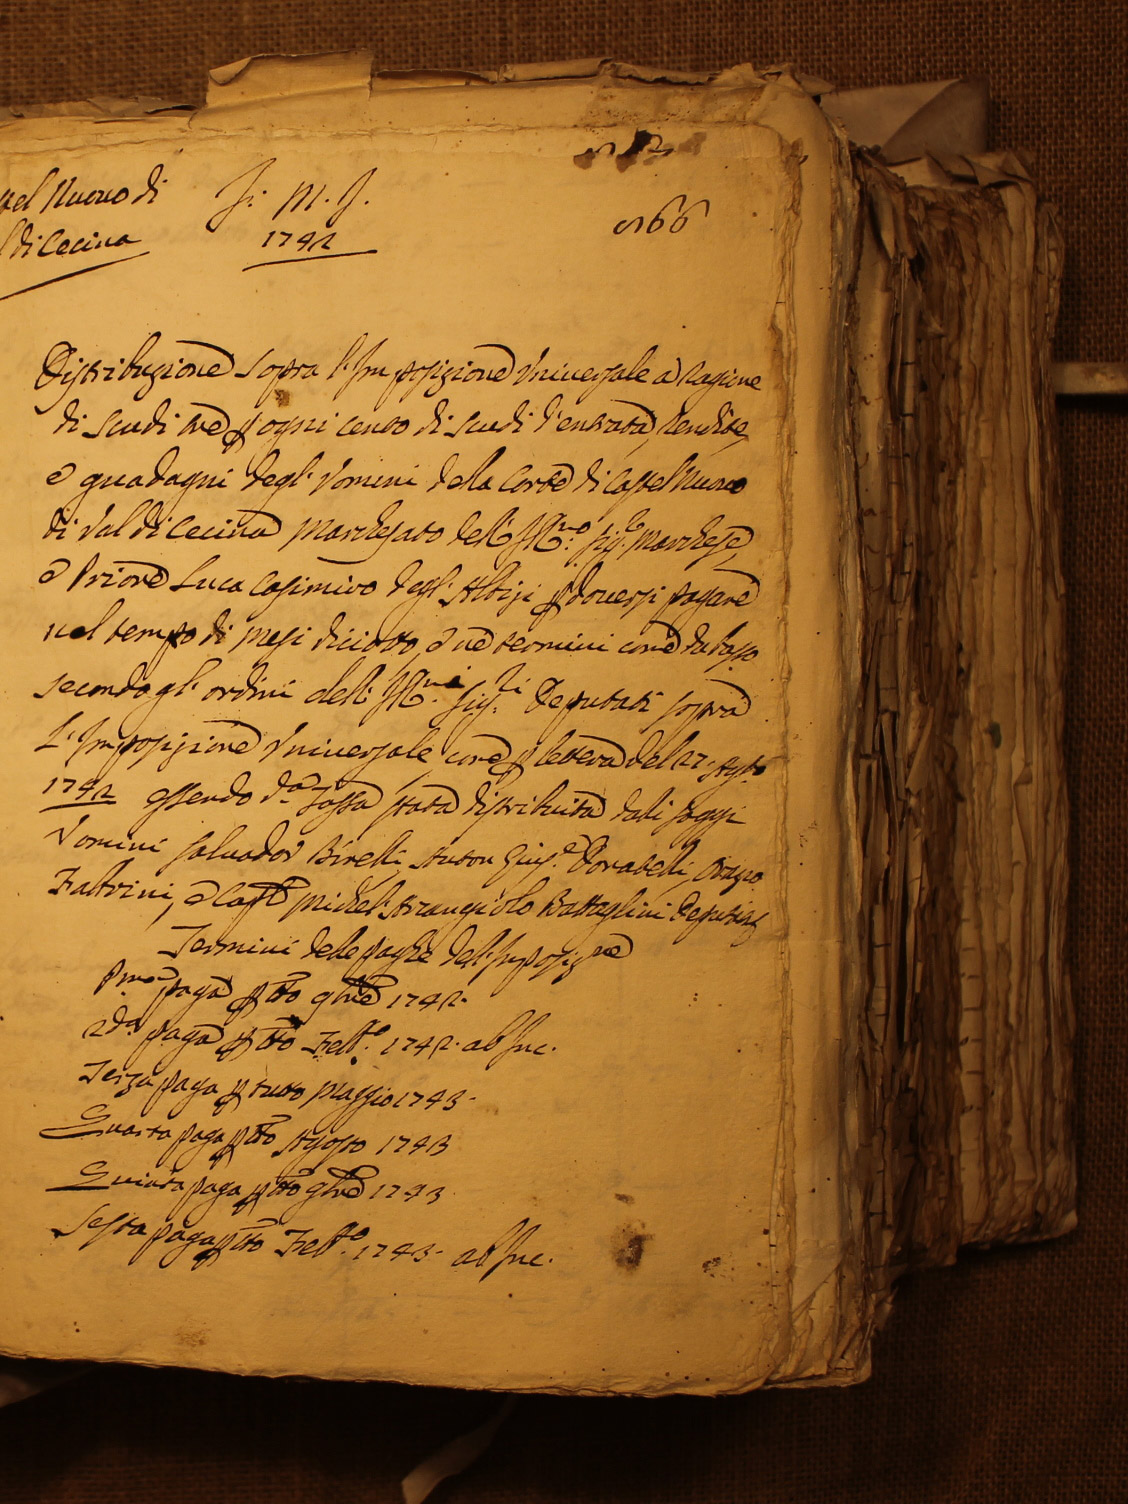 tel Nuovo di
l di Cecina
J. M. J.
1742
566
Distribuzione sopra l'Imposizione Universale à ragione
di scudi tre p ogni cento di scudi d'entrata, rendite,
e guadagni degl' Uomini della Corte di Castel Nuovo
di Val di Cecina Marchesato dell' Ill.mo Sig.re Marchese,
e Priore Luca Casimiro degl' Albizi p doversi pagare
nel tempo di mesi diciotto, e ne termini come da basso
secondo gl' ordini dell' Ill.mi Sig.ri Deputati sopra
l'Imposizione Universale come p lettera del 27. Agto
1742 essendo d.a Tassa stata distribuita dali
Uomini Salvador Birelli, Anton Gius.e Donatelli,
Fabrini, e Michel' Arcangiolo Battaglini Deputati
Termini delle paghe dell' Imposiz.ne
Pma paga p tto 9bre 1742.
2da paga p tto Febb.o 1742. ab Inc.
Terza paga p tutto Maggio 1743.
Quarta paga p tto Agosto 1743
Quinta paga p tto 9bre 1743
Sesta paga p tto Febb.o 1743. ab Inc.